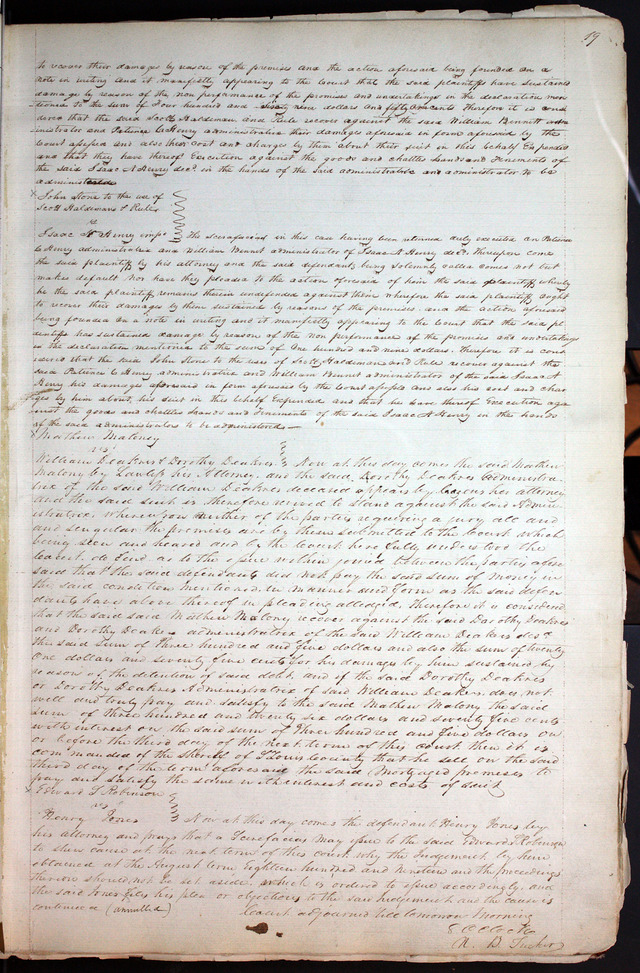 19
to recover their damages by reason of the premises and the action aforesaid being founded on a
note in writing and it manifestly appearing to the Court that the said plaintiffs have sustained
damage by reason of the non performance of the promises and undertakings in the declaration men
tioned to the sum of Four hundred and nine dollars and fifty cents Therefore it is consi
dered that the said Scott Haldeman and Rule recover against the said William Bennett adm
inistrator and Patience C Henry administratrix their damages aforesaid in form aforesaid by the
Court assessed and also their cost and charges by them about their suit in this behalf Expended
and that they have thereof Execution against the goods and chattles Lands and Tenements of
the said Isaac A Henry decd. in the hands of the said administratrix and administrator to be
administered
x John Stone to the use of
Scott Haldemans & Rule
vs
Isaac A Henry The Scirafacias in this case having been returned duly executed on Patience
C Henry administratrix and William Bennet administrator of Isaac A Henry decd. thereupon come
the said plaintiffs by his attorney and the said defendants being solemnly called comes not but
makes default nor have they pleaded to the action aforesaid of him the said plaintiff whereby
he the said plaintiff remains therein undefended against them wherefore the said plaintiff ought
to recover their damages by them sustained by reasons of the premises. and the action aforesaid
being founded on a note in writing and it manifestly appearing to the Court that the said pl
aintiff has sustained damage by reason of the non performance of the promises and undertakings
in the declaration mentioned to the sum of One hundred and nine dollars. therefore it is cons
idered that the said John Stone to the use of Scott Haldeman and Rule recover against the
said Patience C Henry administratrix and William Bennet administrator of the said Isaac A
Henry his damages aforesaid in form aforesaid by the Court assessed and also his cost and char
ges by him about his suit in this behalf Expended and that he have thereof Execution aga
inst the goods and chattles Lands and Tenements of the said Isaac A Henry in the hands
of the said administrators to be administered
x Mathew Maloney
vs
William Deakers & Dorothy Deakers Now at this day comes the said Mathew
Malony by his Attorney, and the said Dorothy Deakers Administra
trix of the said William Deakers deceased appears by her attorney
and the said suit is therefore revived to stand against the said Admin
istratrix whereupon neither of the parties requiring a jury all and
and singular the premises are by them submitted to the Court which
being seen and heard and by the Court here fully understood the
Court do find as to the issue within joined between the parties afore
said that the said defendants did not pay the said sum of money in
the said condition mentioned in manner and form as the said defen
dants have above thereof in pleading alledged, Therefore it is considered
that the said said Mathew Malony recover against the said Dorothy Deakers
and Dorothy Deakers administratrix of the said William Deakers decd.
the said Sum of Three hundred and five dollars and also the sum of twenty
One dollars and seventy five cents for his damages by him sustained by
reason of the detention of said debt, and if the said Dorothy Deakers
or Dorothy Deakers Administratrix of said William Deakers. does not
well and truly pay and satisfy to the said Mathew Malony the said
sum of three hundred and twenty six dollars and seventy five cents
with interest on the said sum of Three hundred and five dollars on
or before the third day of the next term of this Court then it is
commanded of the Sheriff of St Louis County that he sell on the said
third day of the term aforesaid the said Mortgaged premises to
pay and satisfy the same with interest and costs of suit
x Edward T Robinson
vs
Henry Jones Now at this day comes the defendant Henry Jones by
his attorney and prays that a Scirefacias may issue to the said Edward T Robinson
to shew cause at the next term of this Court, why the Judgement by him
obtained at the August term Eighteen hundred and nineteen and the proceedings
thereon should not be set aside, which is ordered to issue accordingly, and
the said Jones files his plea or objections to the said Judgement and the cause is
continued (annulled)
Court adjourned till tomorrow Morning
8 OClock
N. B. Tucker